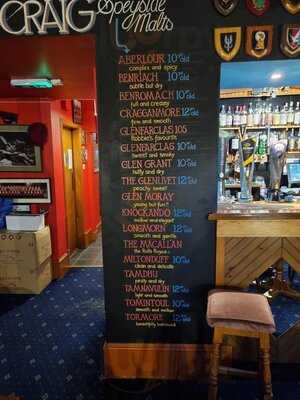 CRAIG
Speyside
Malts
ABERLOUR 10 Y Old
complex and spicy
BENRIACH 10 Y Old
subtle but dry
BENROMACH 10 Y Old
full and creamy
CRAGGANMORE 12 Y Old
firm and smooth
GLENFARCLAS 105
Robbie's favourite
GLENFARCLAS 10 Y Old
sweet and smoky
GLEN GRANT 10 Y Old
nutty and dry
THE GLENLIVET 12 Y Old
peachy sweet
GLEN MORAY
young but fun!
KNOCKANDO 12 Y Old
mellow and elegant
LONGMORN 12 Y Old
smooth and gentle
THE MACALLAN
the Rolls Royce
MILTONDUFF 10 Y Old
clean and delicate
TAMDHU
peaty and dry
TAMNAVULIN 12 Y Old
light and smooth
TOMINTOUL 10 Y Old
smooth and mellow
TORMORE 12 Y Old
beautifully balanced